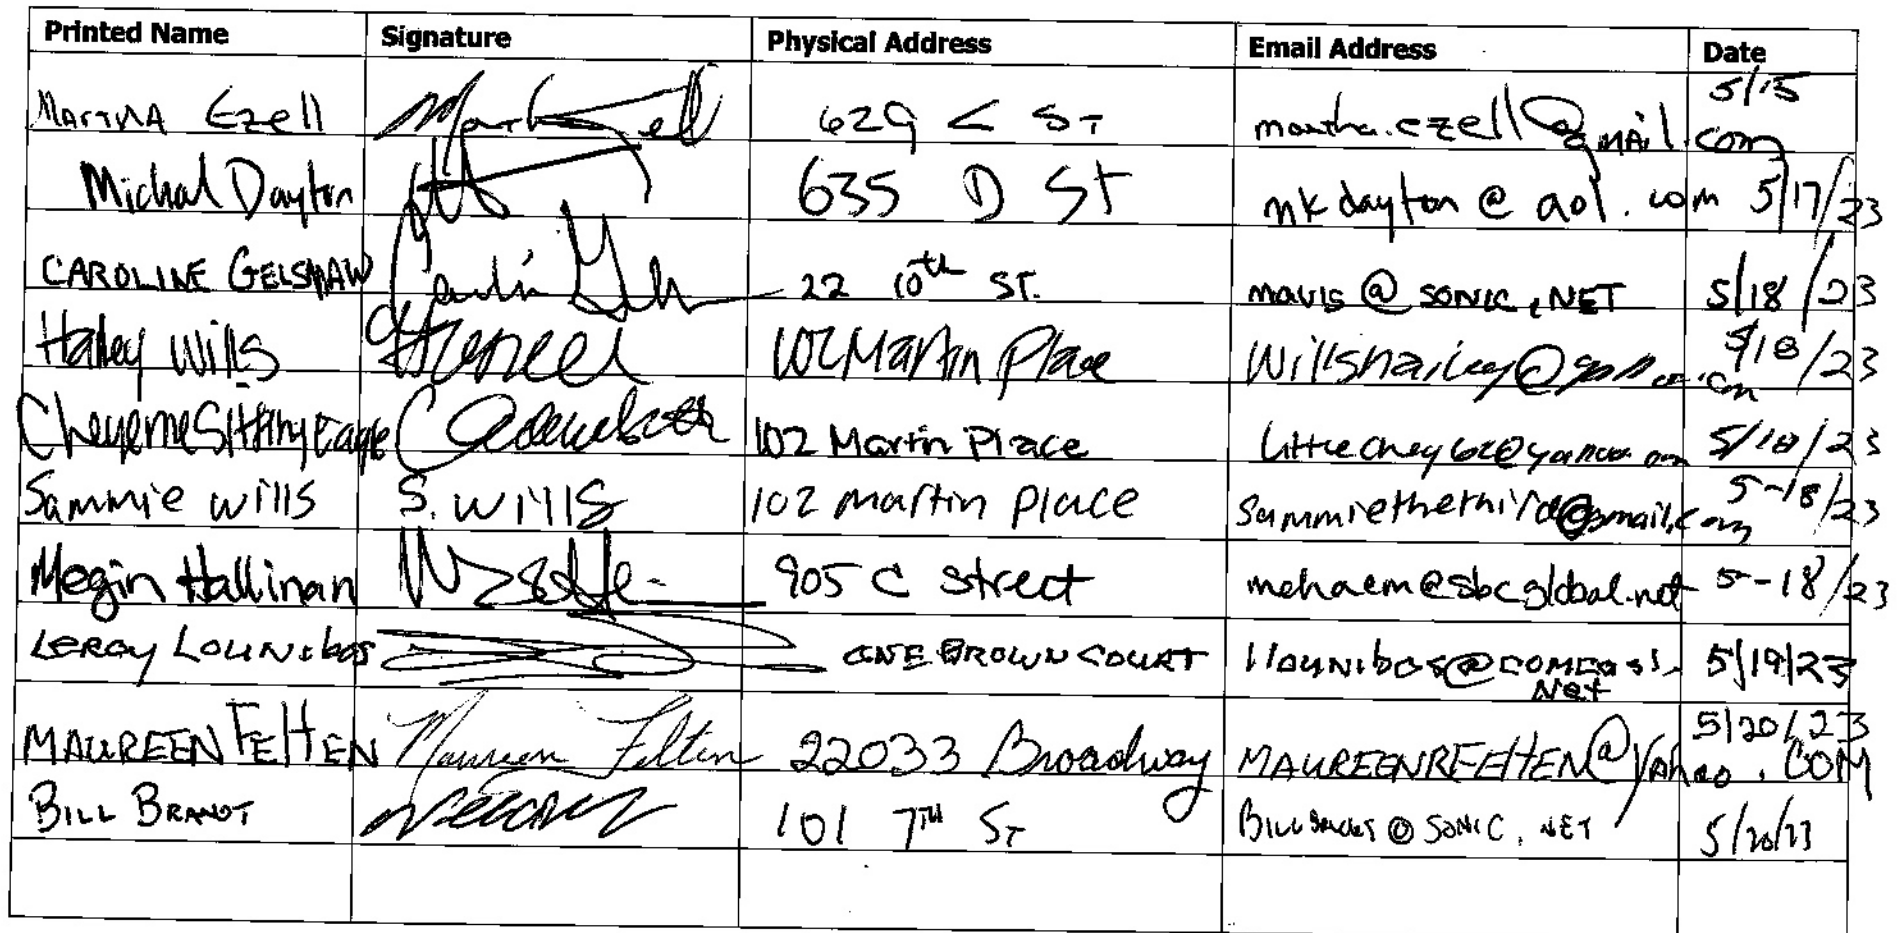 Printed Name Signature Physical Address Email Address Date
MARTHA Ezell 629 C ST martha.ezell@gmail.com 5/15
Michal Dayton 635 D St mkdayton@aol.com 5/17/23
CAROLINE GELSHAW 22 10th ST. mavis@SONIC.NET 5/18/23
Hailey Wills 102 Martin Place Willshailey@ 5/18/23
Cheyenne Sitting Eagle 102 Martin Place 5/18/23
Sammie Wills S. Wills 102 Martin Place Sammiethethird@gmail.com 5-18/23
Megin Hallinan 905 C Street mehaem@sbcglobal.net 5-18/23
LEROY LOUNibos ONE BROWN COURT llounibos@COMCAST.
Net 5/19/23
MAUREEN FEltEN Maureen Felten 22033 Broadway MAUREENRFEltEN@YAhoo.COM 5/20/23
BILL BRANDT 101 7TH ST @SONIC.NET 5/20/23